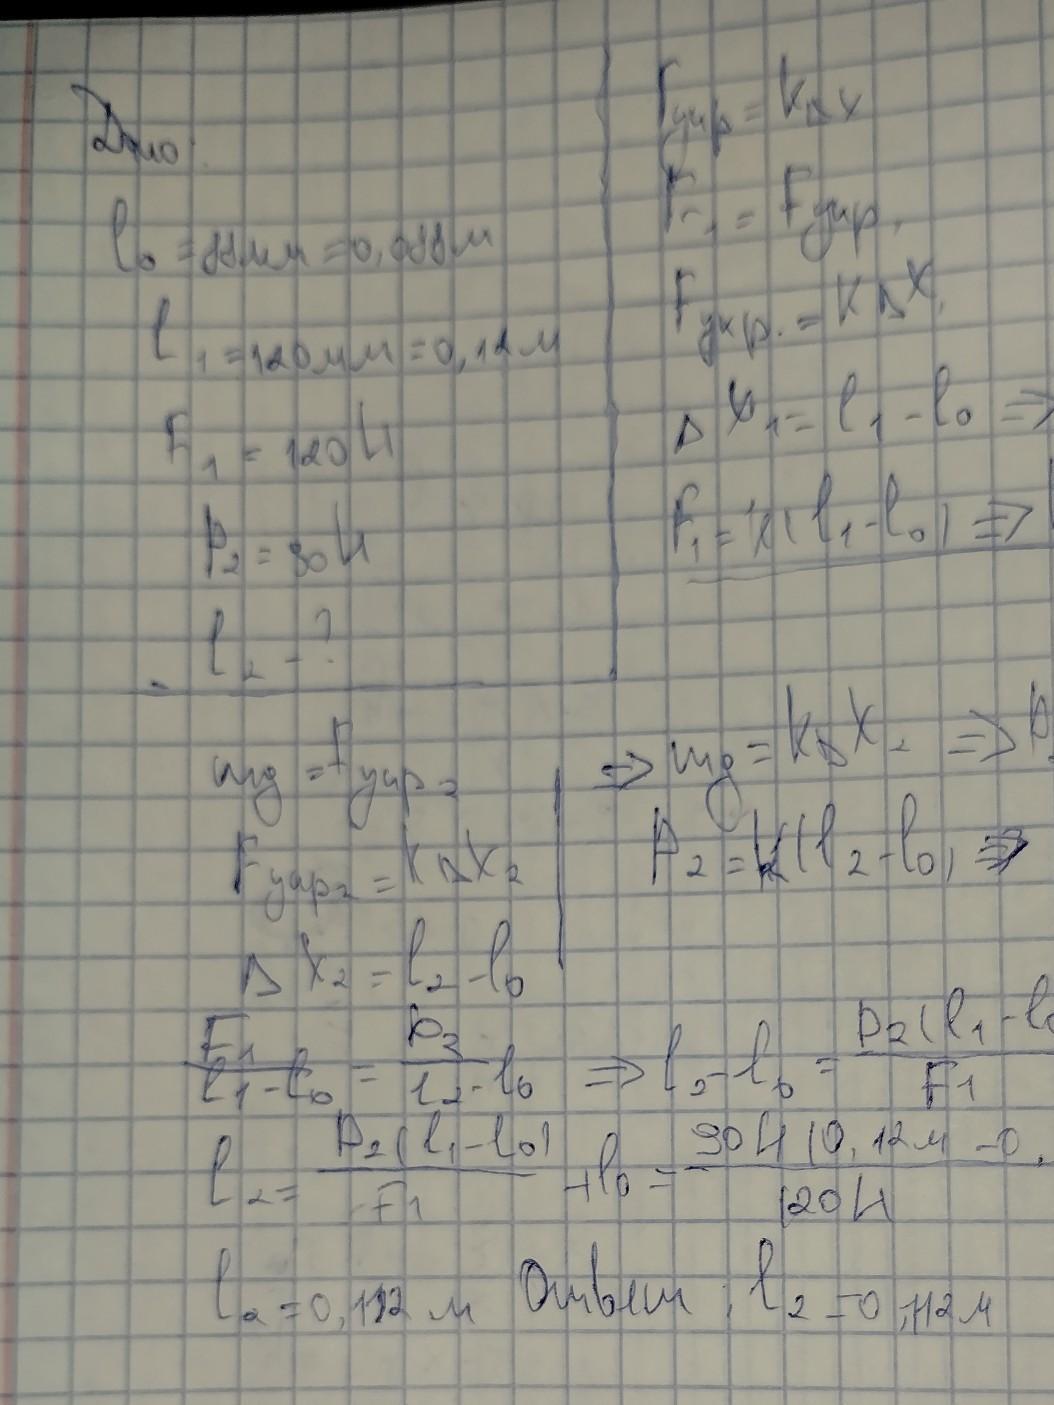 Дано:
l₀ = 88мм = 0,088м
l₁ = 120мм = 0,12м
F₁ = 120Н
P₂ = 90Н
l₂ - ?
Fупр = kΔx
F₁ = Fупр.
Fупр. = kΔx
Δx₁ = l₁ - l₀ =>
F₁ = k(l₁ - l₀) =>
mg = Fупр₂
Fупр₂ = kΔx₂
Δx₂ = l₂ - l₀
=> mg = kΔx₂ => P
P₂ = k(l₂ - l₀) =>
F₁/(l₁ - l₀) = P₂/(l₂ - l₀) => l₂ - l₀ = P₂(l₁ - l₀/F₁
l₂ = P₂(l₁ - l₀)/F₁ + l₀ = 90Н(0,12м - 0,/120Н
l₂ = 0,112м Ответ: l₂ = 0,112м